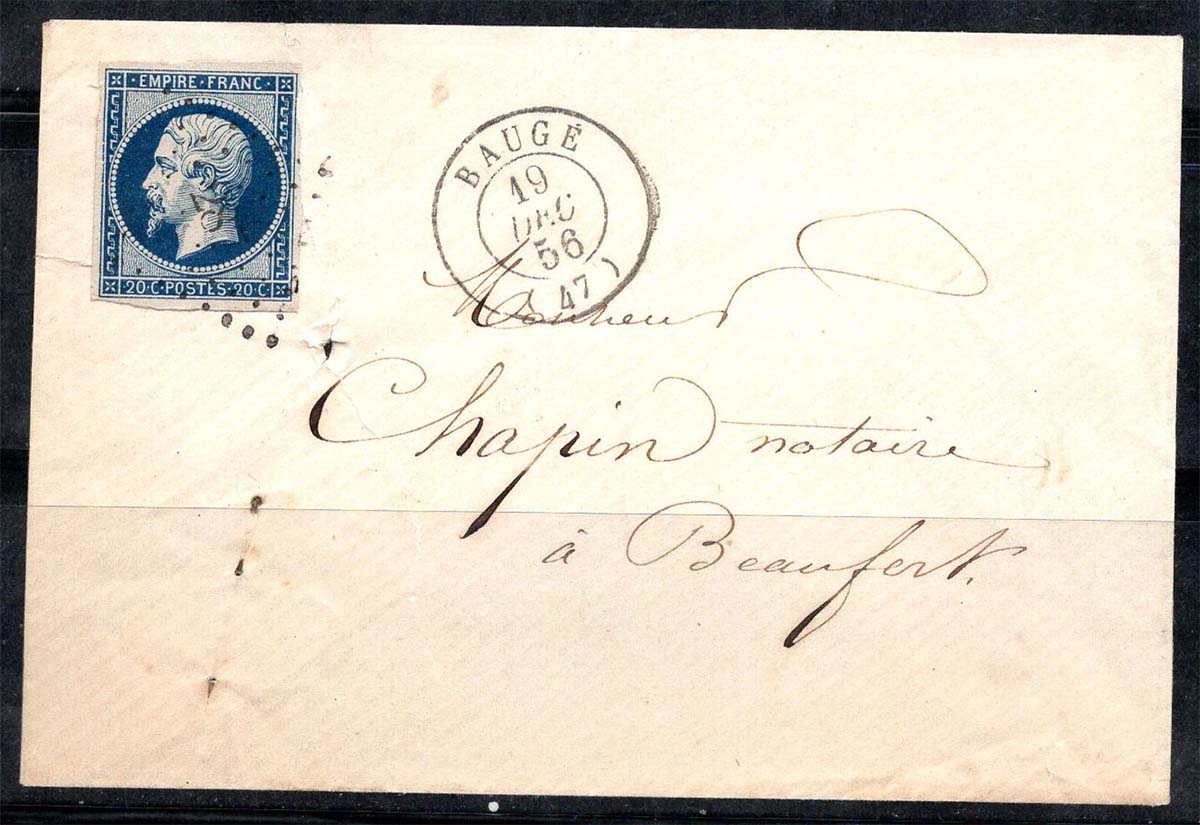 · EMPIRE · FRANC ·
20 · C · POSTES · 20 · C
BAUGÉ
19
DEC
56
( 47 )
Monsieur
Chapin notaire
à Beaufort.